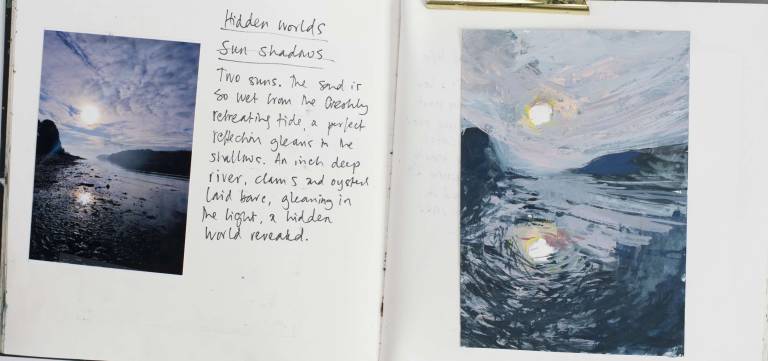 Hidden worlds
Sun shadows
Two suns. The sand is
so wet from the freshly
retreating tide, a perfect
reflection gleams in the
shallows. An inch deep
river, clams and oysters
laid bare, gleaming in
the light, a hidden
world revealed.